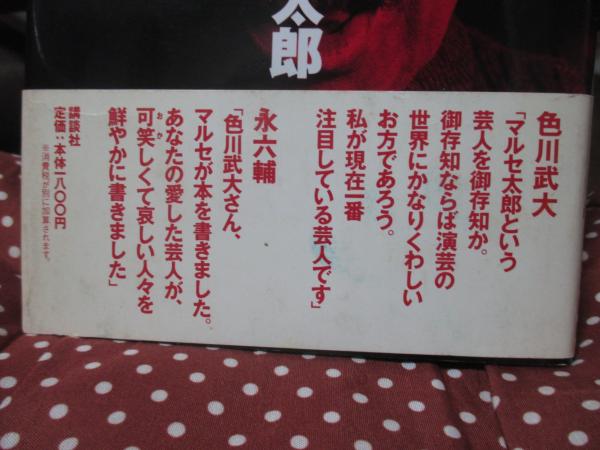 太郎
色川武大
「マルセ太郎という
芸人を御存知か。
御存知ならば演芸の
世界にかなりくわしい
お方であろう。
私が現在一番
注目している芸人です」
永六輔
「色川武大さん、
マルセが本を書きました。
あなたの愛した芸人が、
可笑しくて哀しい人々を
おか
鮮やかに書きました」
講談社
定価：本体一八〇〇円
※消費税が別に加算されます。